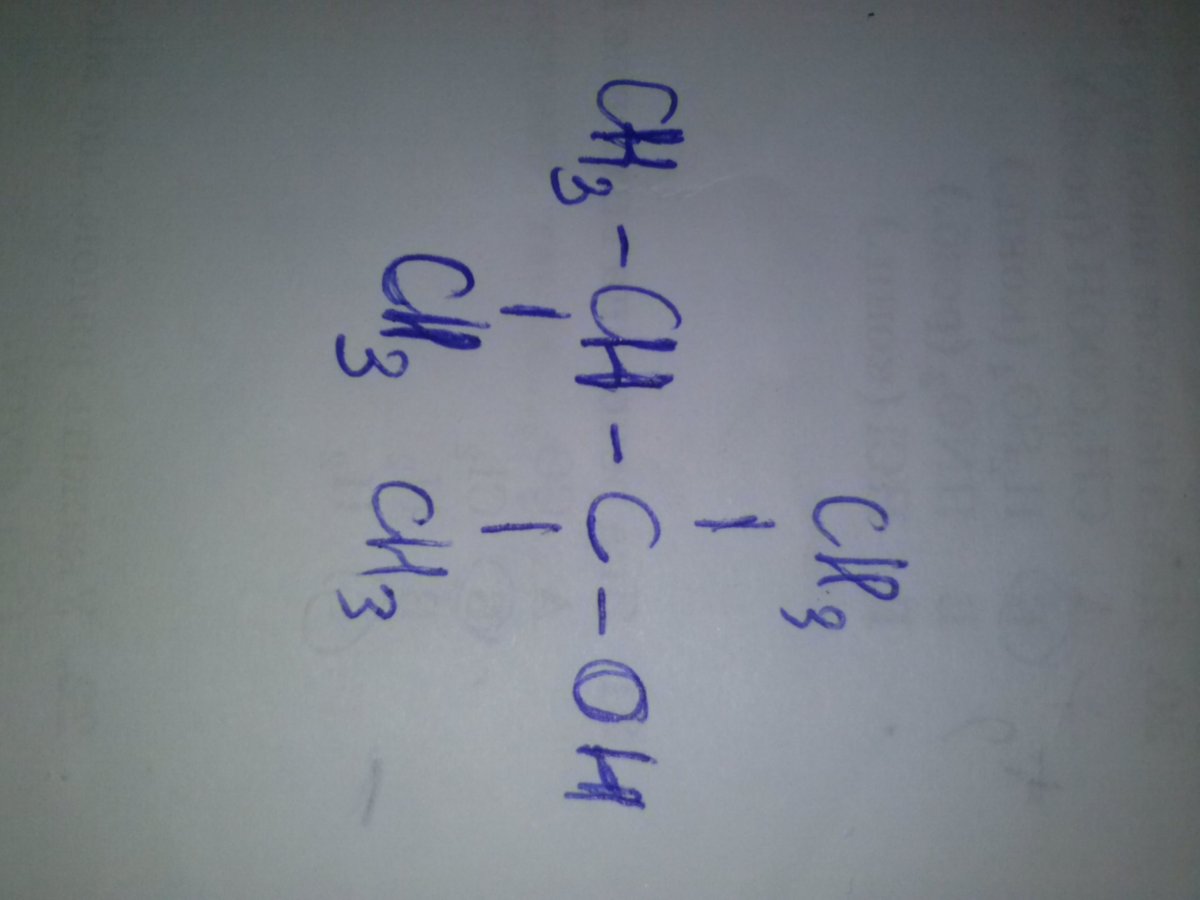 CH₃
|
CH₃ - CH - C - OH
| |
CH₃ CH₃